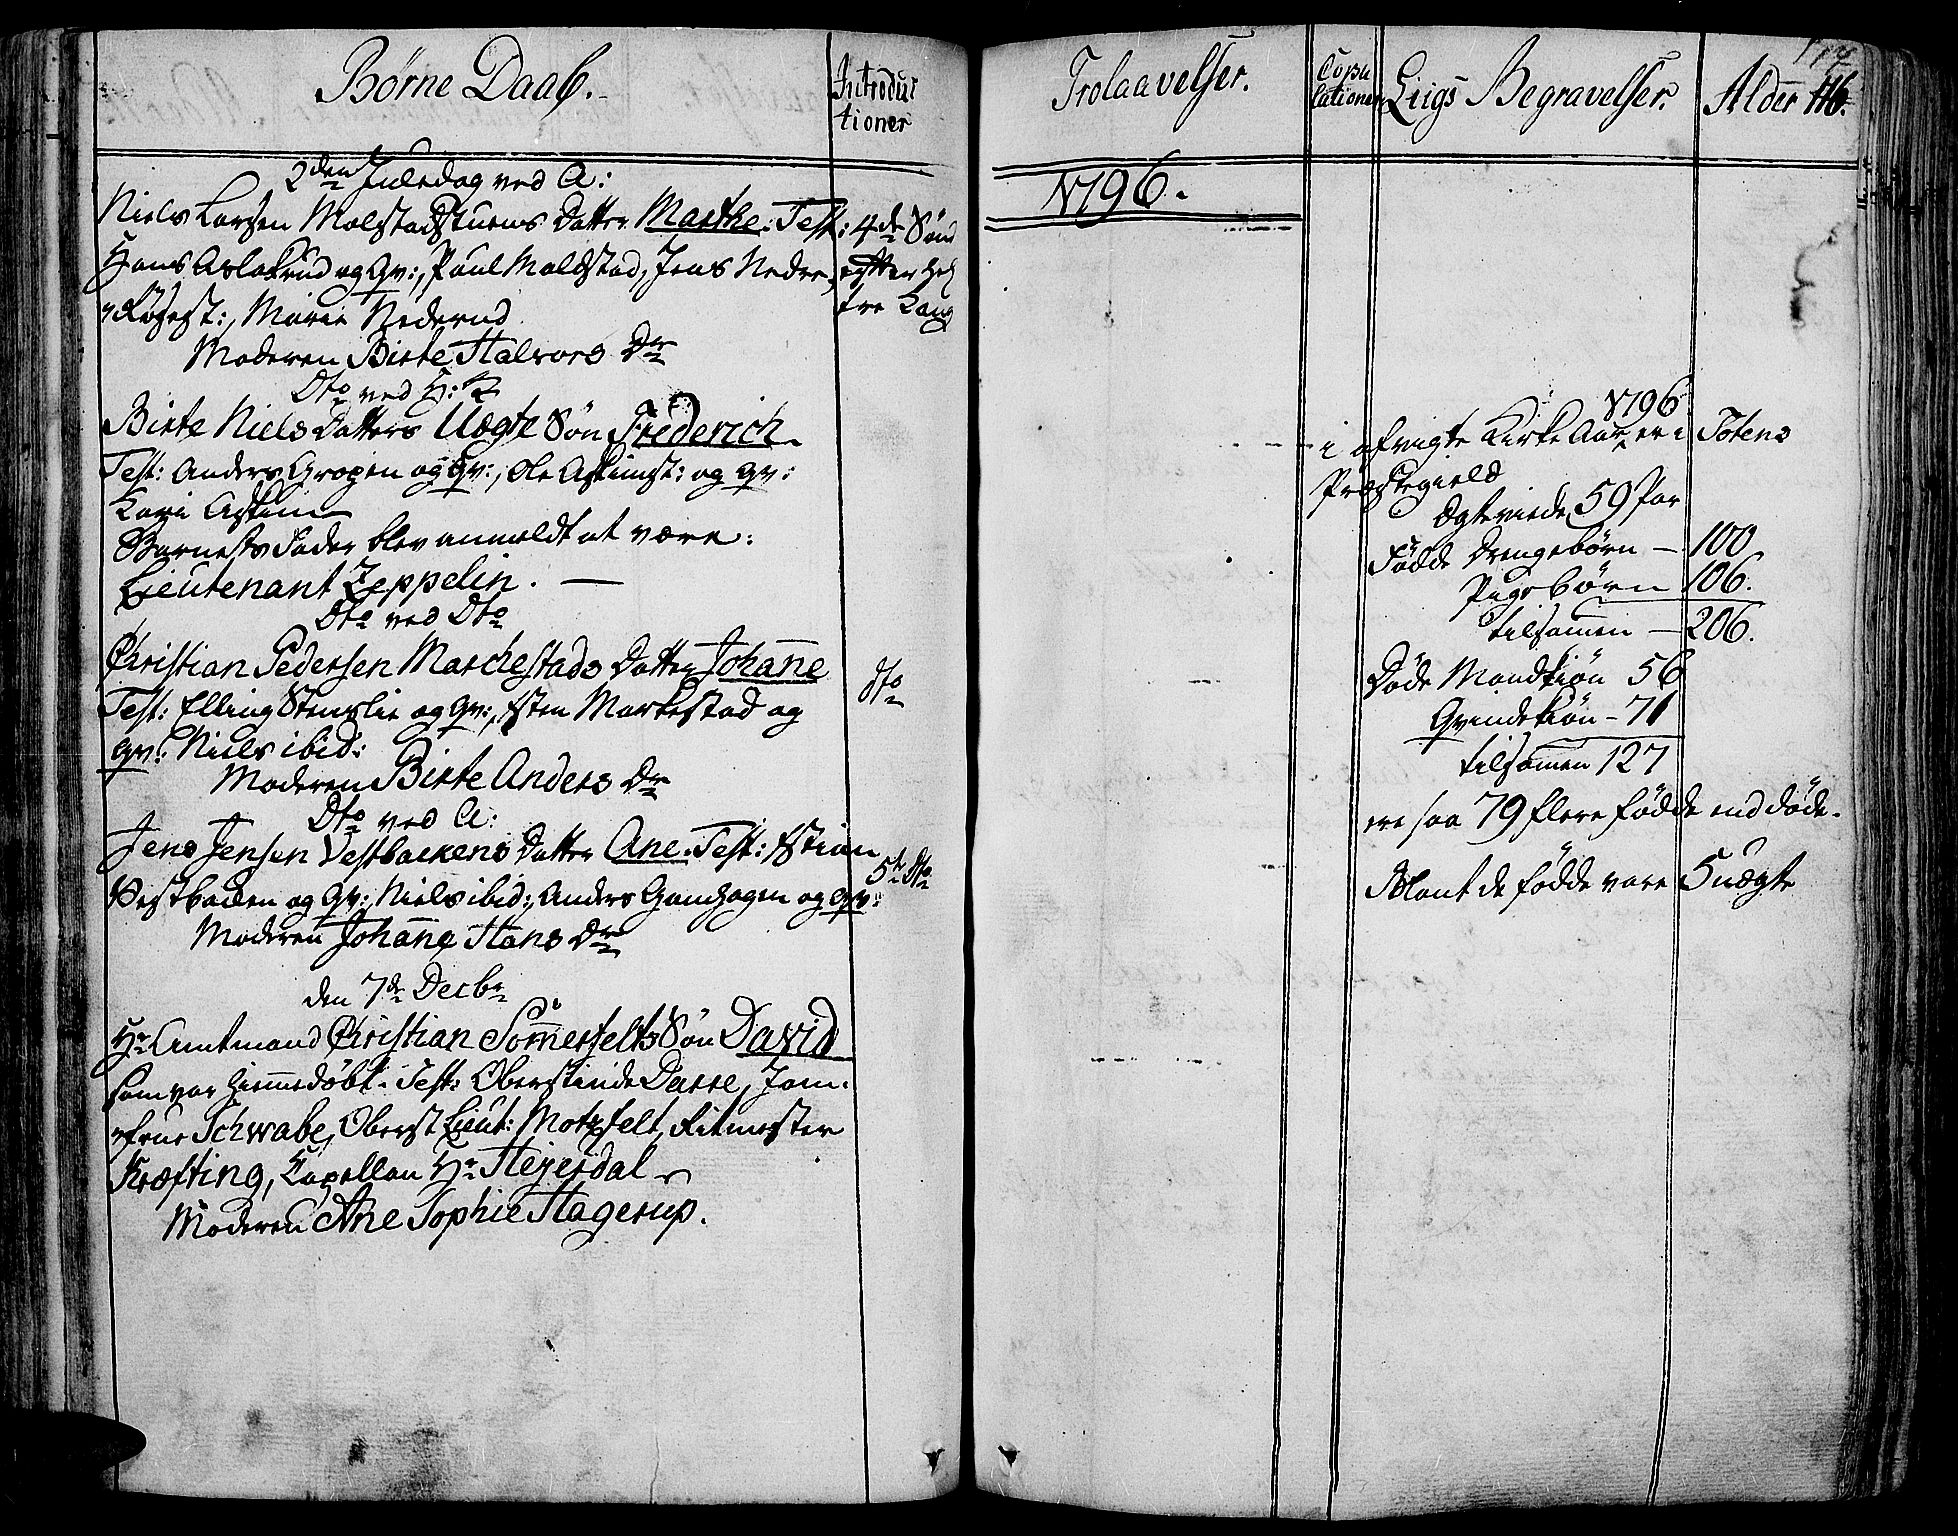 Børne Daab.
Introduc
tioner
2den Juledag ved A:
Niels Larsen Molstadstuens Datter Marthe. Test:
Hans Aslakrud og Qv:, Poul Moldstad, Jens Nedre,
Røsest:, Marie Nederud
Moderen Birte Halvors Dr
4de Sønd
efter Hel
tre Kong
Dto ved H: K
Birte Niels Datters Uægte Søn Friderich.
Test: Anders Gropen og Qv:, Ole Askimst: og Qv:
Kari Askim
Barnets Fader blev anmeldt at være:
Lieutenant Zeppelin. —
Dto ved Dto
Christian Pedersen Marchestads Datter Johanne
Test: Elling Stenslie og Qv:, Sten Markestad og
Qv: Niels ibid:
Moderen Birte Anders Dr
dto
Dto ved A:
Jens Jensen Vestbackens Datter Ane. Test: Stian
Vestbacken og Qv:, Niels ibid:, Anders Gaughagen og Qv:
Moderen Johanne Hans Dr
5te dto
den 7de Decbr
Hr Amtmand Christian Sommerfelts Søn David
som var hiemmedøbt. Test: Oberstinde Darre, Jom-
frue Schwabe, Oberst Lieut: Motzfelt, Ritmester
Kræfting, Capellan Hr Heyerdal
Moderen Ane Sophie Hagerup.
Trolaavelser.
Copu
lationer
Liigs Begravelser.
Alder
117
116.
1796.
1796
i afvigte Kirke Aar er i Totens
Præstegield
Ægteviede 59 Par
Fødde Drengebørn — 100
Pigebørn 106.
tilsamen — 206.
Døde Mandkiøn 56
Qvindekiøn - 71
tilsamen 127
ere saa 79 flere fødde end døde.
Blant de fødde vare 5 uægte